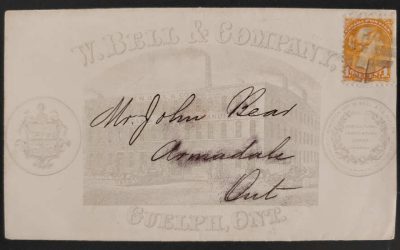 W. BELL & COMPANY,
Mr. John Bear
Armadale
Ont
GUELPH, ONT.